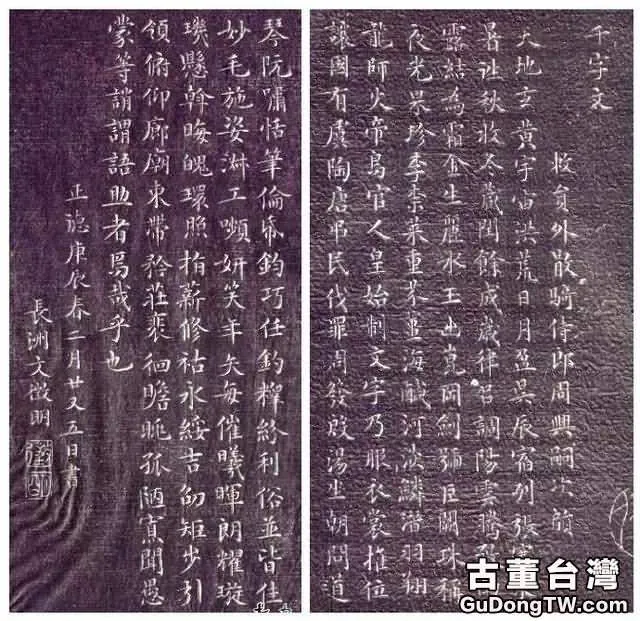 千字文
敕員外散騎侍郎周興嗣次韻
天地玄黃宇宙洪荒日月盈昃辰宿列張
暑往秋收冬藏閏餘成歲律呂調陽雲騰
露結為霜金生麗水玉出崑岡劍號巨闕珠稱
夜光果珍李柰菜重芥薑海鹹河淡鱗潛羽翔
龍師火帝鳥官人皇始制文字乃服衣裳推位
讓國有虞陶唐弔民伐罪周發殷湯坐朝問道
琴阮嘯恬筆倫紙鈞巧任釣釋紛利俗並皆佳
妙毛施姿淑工嚬妍笑年矢每催曦暉朗耀璇
璣懸斡晦魄環照指薪修祜永綏吉劭矩步引
領俯仰廊廟束帶矜莊裴徊瞻眺孤陋寡聞愚
蒙等誚謂語助者焉哉乎也
正德庚辰春二月廿又五日書
長洲文徵明
古董台灣
GuDongTW.com